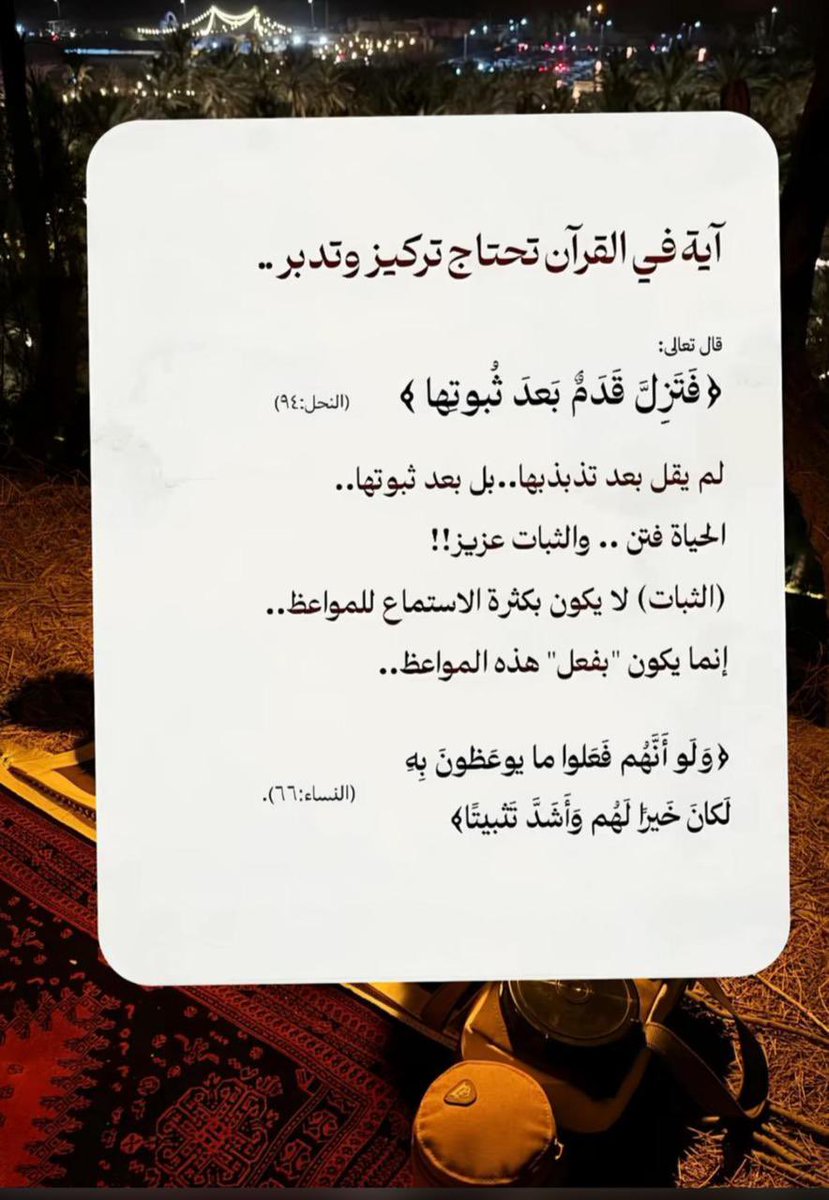 آية في القرآن تحتاج تركيز وتدبر ..
قال تعالى:
﴿فَتَزِلَّ قَدَمٌ بَعدَ ثُبوتِها ﴾ (النحل:٩٤)
لم يقل بعد تذبذبها..بل بعد ثبوتها..
الحياة فتن .. والثبات عزيز!!
(الثبات) لا يكون بكثرة الاستماع للمواعظ..
إنما يكون "بفعل" هذه المواعظ..
﴿وَلَو أَنَّهُم فَعَلوا ما يوعَظونَ بِهِ
لَكانَ خَيرًا لَهُم وَأَشَدَّ تَثبيتًا﴾ (النساء:٦٦).